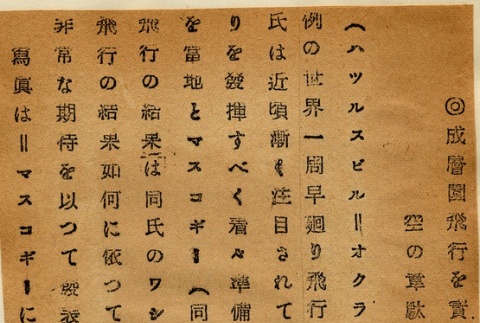 ◎成層圏飛行を實
空の韋駄
（ハツルスビル＝オクラ
例の世界一周早廻り飛行
氏は近頃漸く注目されて
りを發揮すべく着々準備
を當地とマスコギー（同
飛行の結果は同氏のワシ
飛行の結果如何に依つて
非常な期待を以つて
寫眞は＝マスコギーに